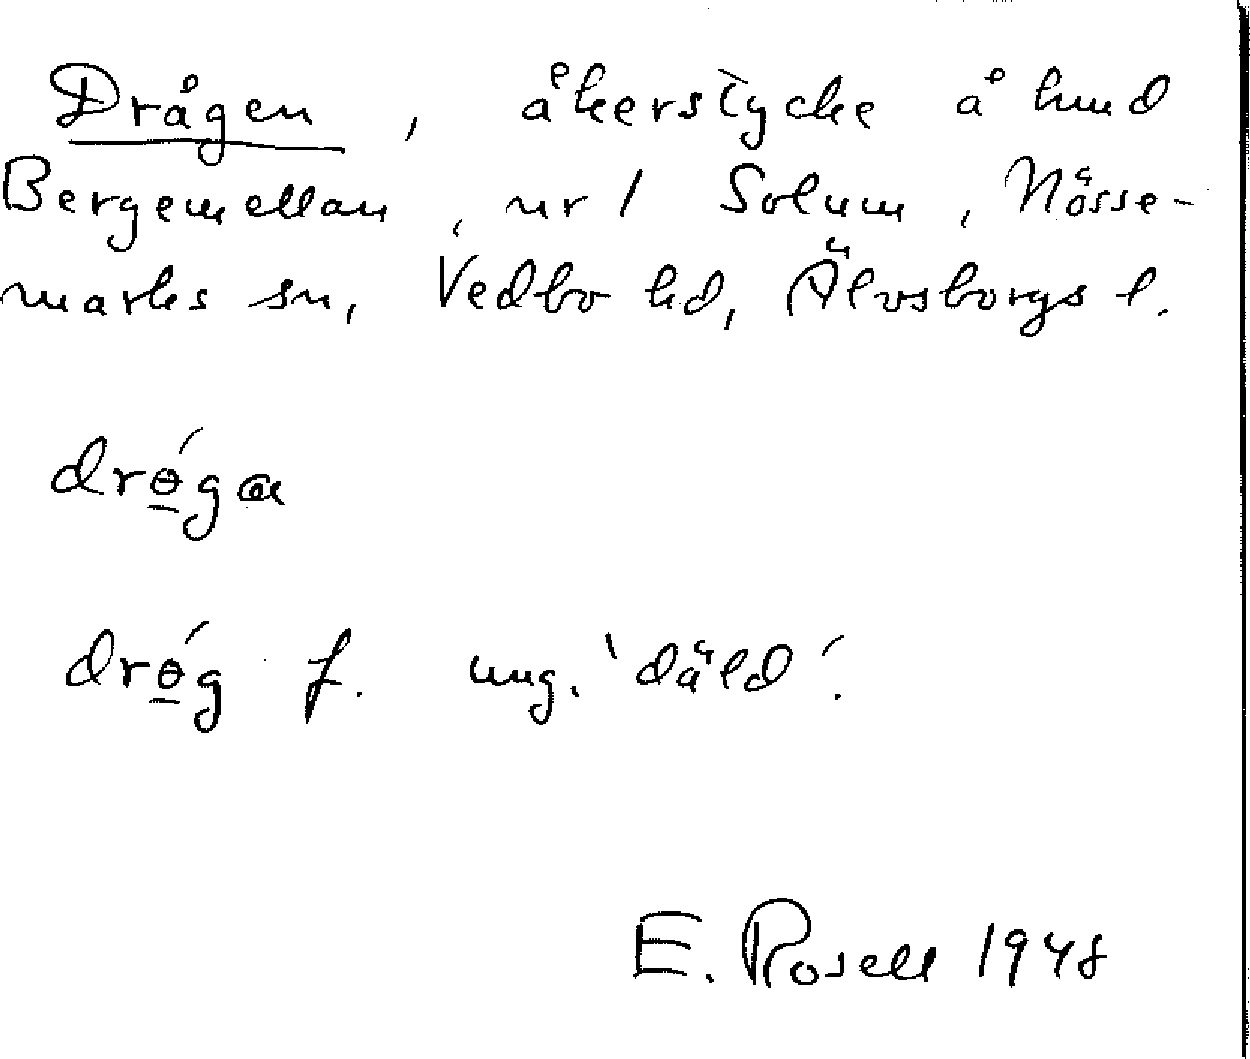 Drågen, åkerstycke å hmd
Bergemellan, nr 1 Solum, Nösse-
marks sn, Vedbo hd, Älvsborgs l.
drө̲́gɑ
drө̲́g f. ung. 'däld'.
E. Rosell 1948